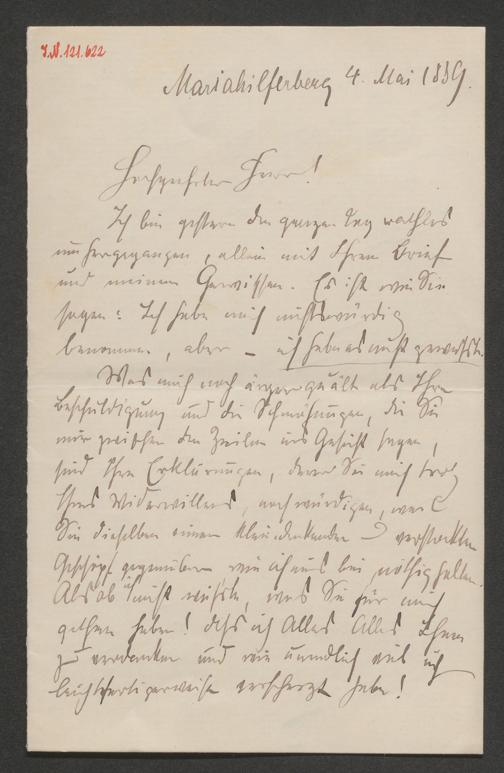 I.N. 121.622
Mariahilferberg 4. Mai 1889.
Hochgeehrter Herr!
Ich bin gestern den ganzen Tag rathlos
umhergegangen, allein mit Ihrem Brief
und meinem Gewissen. Es ist wie Sie
sagen: Ich habe mich nichtswürdig
benommen, aber – ich habe es nicht gewusst.
Was mich noch ärger quält als Ihre
Beschuldigung und die Schmähungen, die Sie
mir zwischen den Zeilen ins Gesicht sagen,
sind Ihre Erklärungen, deren Sie mich trotz
Ihres Widerwillens, noch würdigen, weil
Sie dieselben einem kleindenkenden verstockten
Geschöpf gegenüber wie ich es bin nöthig halten.
Als ob ich nicht wüsste, was Sie für mich
gethan haben! dass ich Alles Alles Ihnen
zu verdanken und wie unendlich viel ich
leichtfertigerweise verscherzt habe!